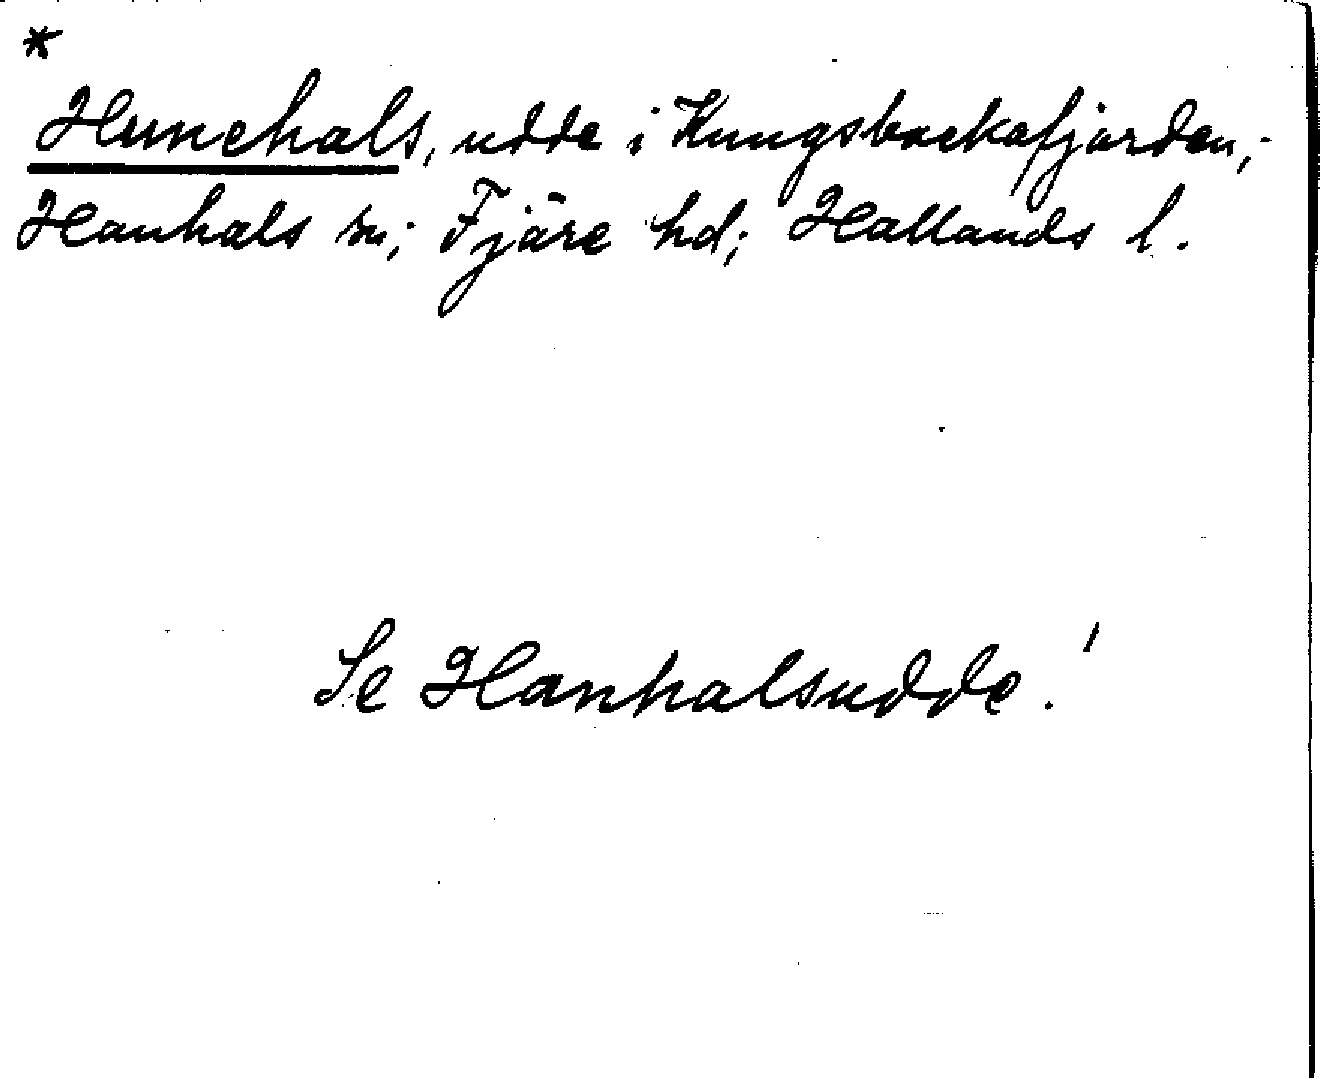 *
Hunehals, udde i Kungsbackafjärden,
Hanhals sn; Fjäre hd; Hallands l.
Se Hanhalsudde!